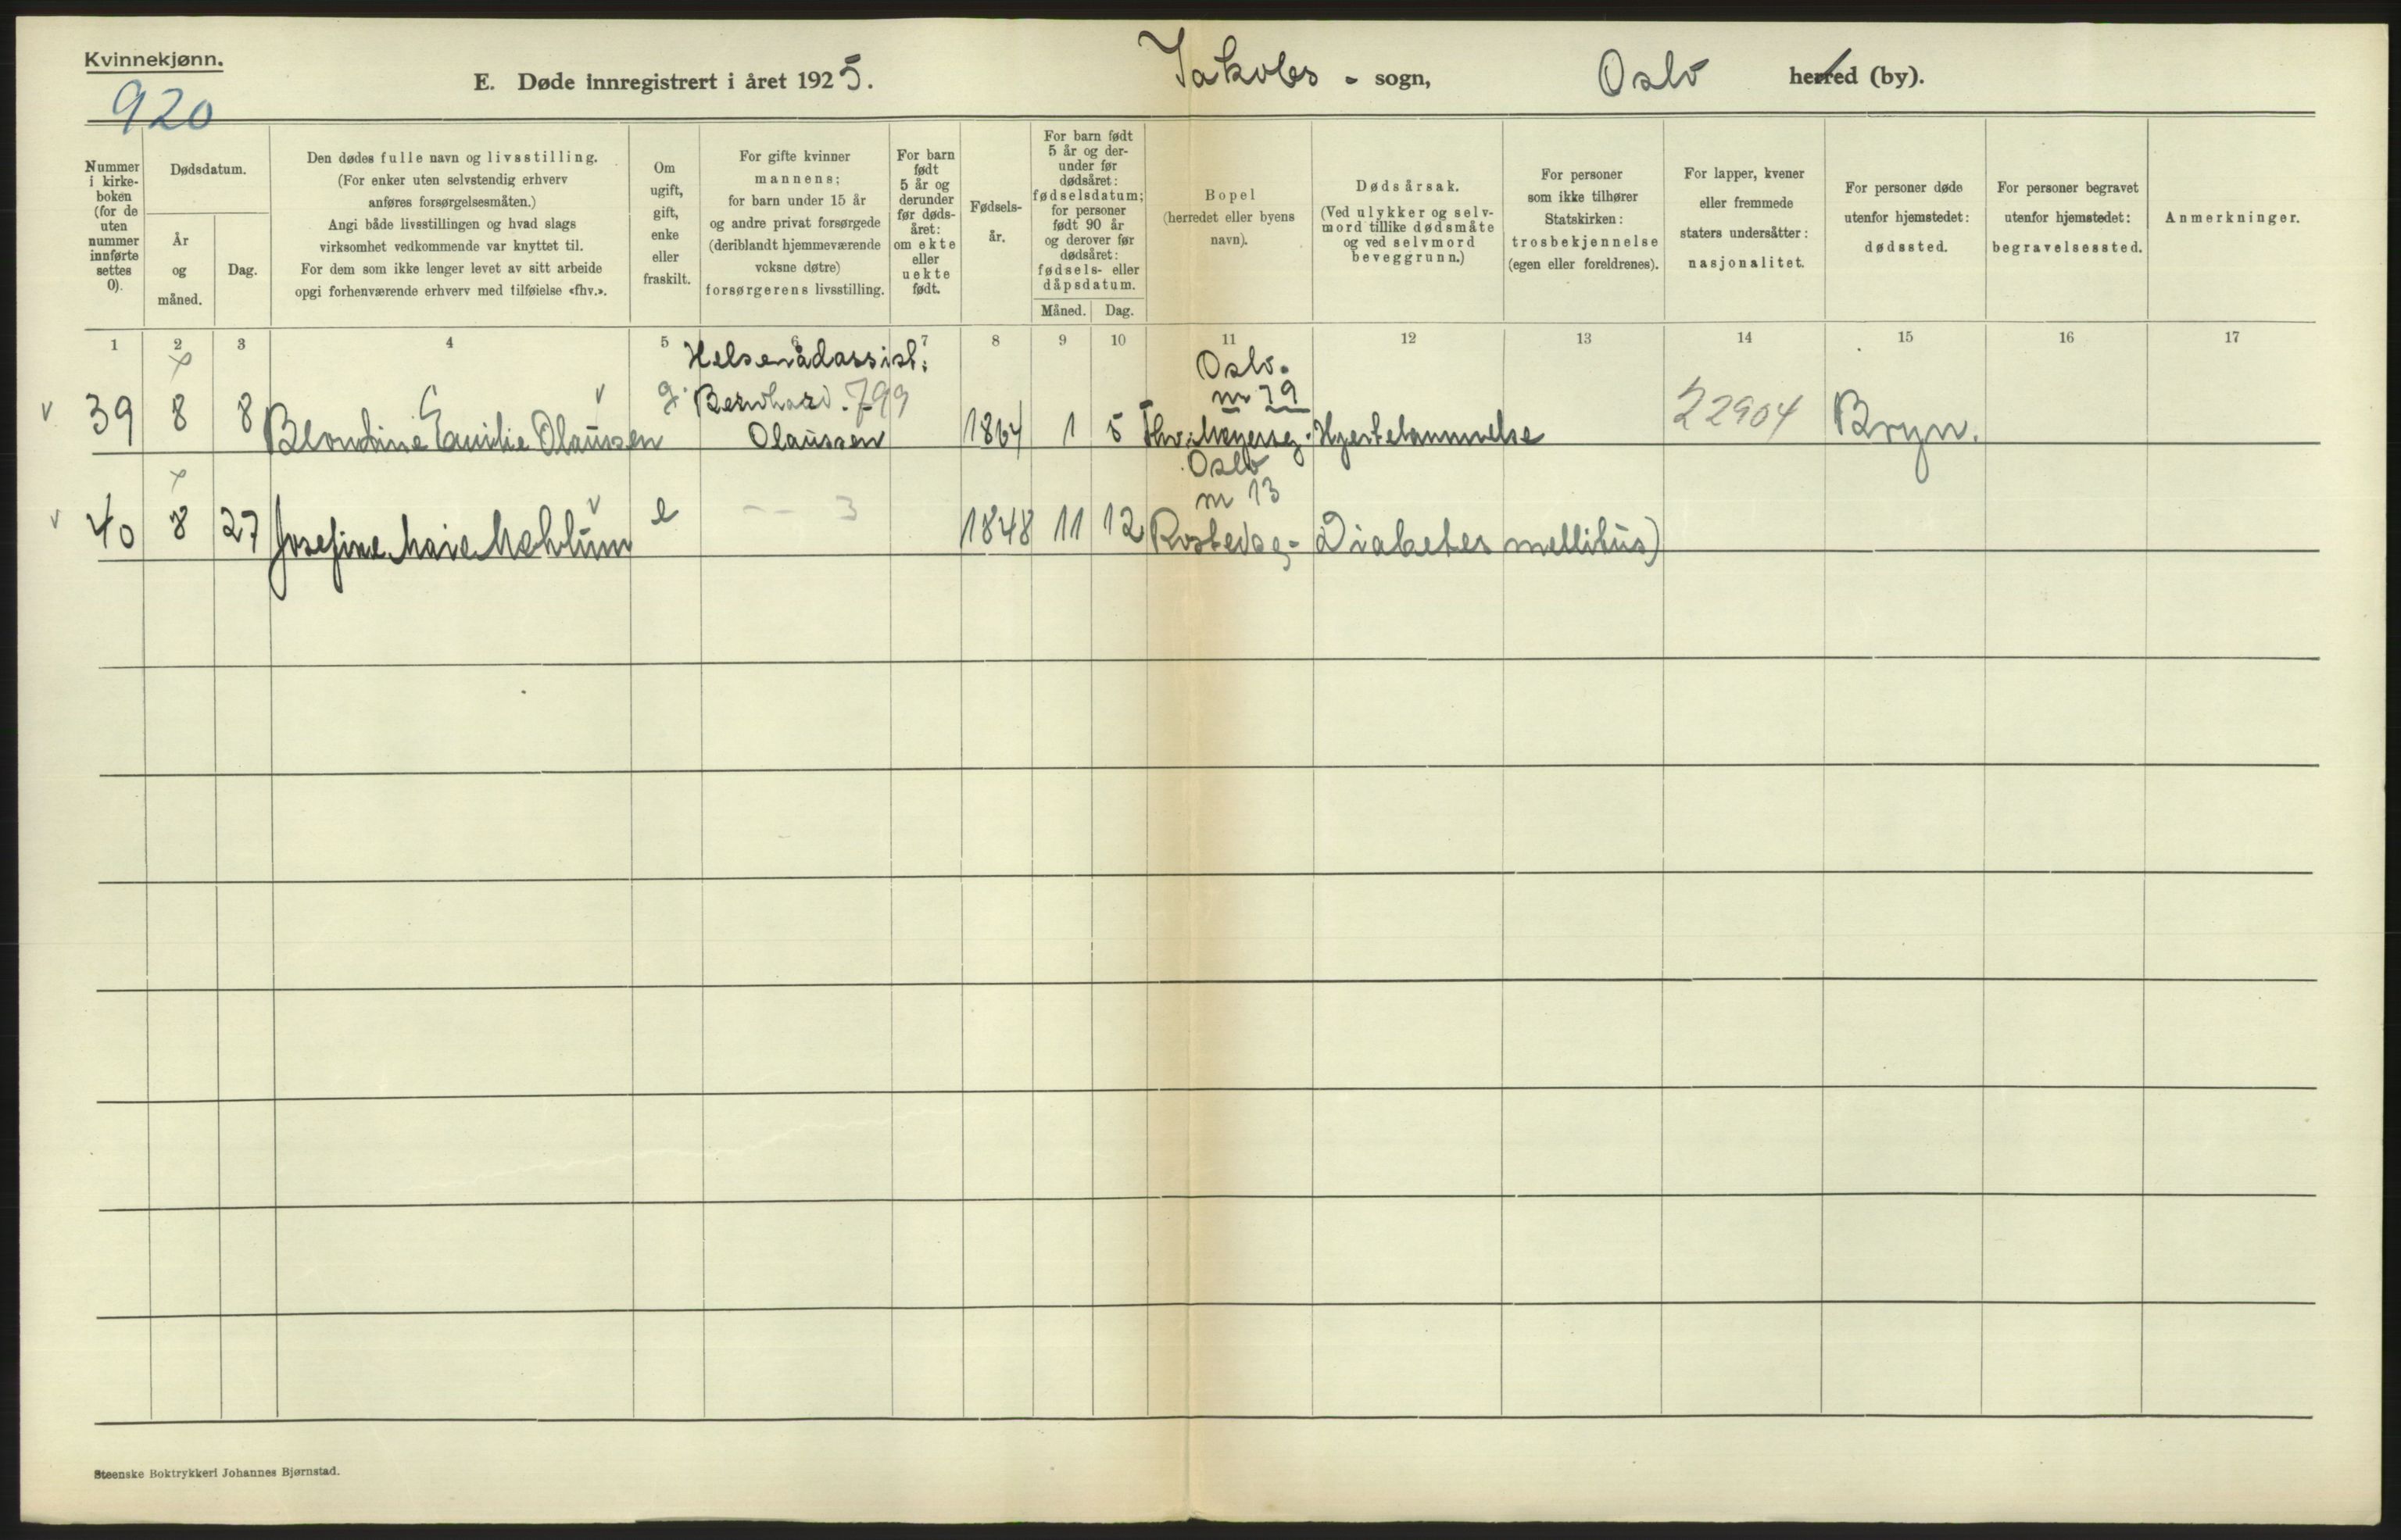 Kvinnekjønn.
920
E. Døde innregistrert i året 1925.
Jakobs - sogn,
Oslo
herred (by).
Nummer
i kirke-
boken
(for de
uten
nummer
innførte
settes
0).
Dødsdatum.
År
og
måned.
Dag.
Den dødes fulle navn og livsstilling.
(For enker uten selvstendig erhverv
anføres forsørgelsesmåten.)
Angi både livsstillingen og hvad slags
virksomhet vedkommende var knyttet til.
For dem som ikke lenger levet av sitt arbeide
opgi forhenværende erhverv med tilføielse «fhv.».
Om
ugift,
gift,
enke
eller
fraskilt.
For gifte kvinner
mannens;
for barn under 15 år
og andre privat forsørgede
(deriblandt hjemmeværende
voksne døtre)
forsørgerens livsstilling.
For barn
født
5 år og
derunder
før døds-
året:
om ekte
eller
uekte
født.
Fødsels-
år.
For barn født
5 år og der-
under før
dødsåret:
fødselsdatum;
for personer
født 90 år
og derover før
dødsåret:
fødsels- eller
dåpsdatum.
Måned.
Dag.
Bopel
(herredet eller byens
navn).
Dødsårsak.
(Ved ulykker og selv-
mord tillike dødsmåte
og ved selvmord
beveggrunn.)
For personer
som ikke tilhører
Statskirken:
trosbekjennelse
(egen eller foreldrenes).
For lapper, kvener
eller fremmede
staters undersåtter:
nasjonalitet.
For personer døde
utenfor hjemstedet:
dødssted.
For personer begravet
utenfor hjemstedet:
begravelsessted.
Anmerkninger.
1 2 3 4 5 6 7 8 9 10 11 12 13 14 15 16 17
Helserådassist:
Oslo.
39 8 8 Blondine Emilie Olaussen g. Bernhard. 799
Olaussen 1864 1 5
nr 79
Hjertelammelse 22904 Bryn.
Oslo
nr 13
40 8 27 Josefine Marie Mehlum e -- 3 1848 11 12 Rostedsg- Diabetes mellitus)
Steenske Boktrykkeri Johannes Bjørnstad.